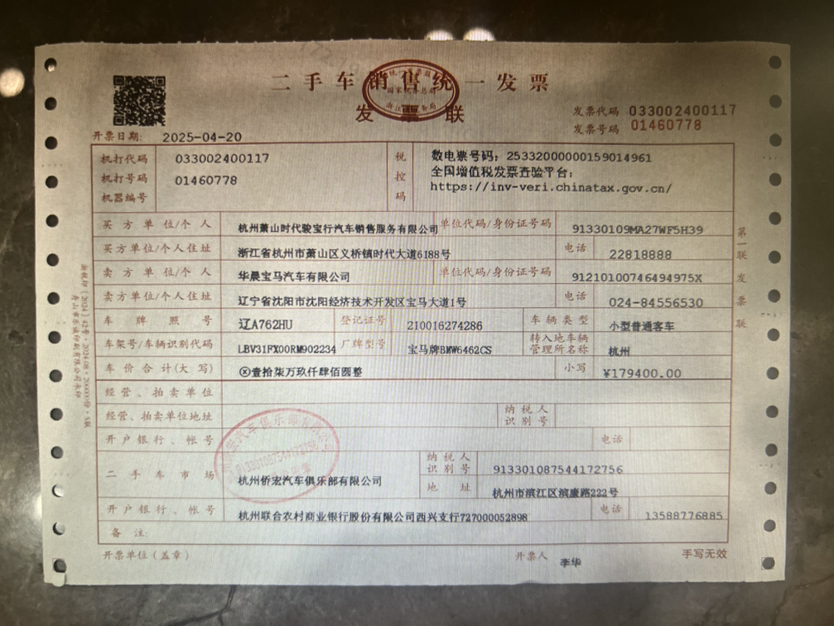 二手车销售统一发票
发票联
发票代码 033002400117
发票号码 01460778
开票日期: 2025-04-20
机打代码 033002400117
机打号码 01460778
机器编号
税控码
数电票号码: 25332000000159014961
全国增值税发票查验平台:
https://inv-veri.chinatax.gov.cn/
买方单位/个人 杭州萧山时代骏宝行汽车销售服务有限公司 单位代码/身份证号码 91330109MA27WF5H39
买方单位/个人住址 浙江省杭州市萧山区义桥镇时代大道6188号 电话 22818888
卖方单位/个人 华晨宝马汽车有限公司 单位代码/身份证号码 91210100746494975X
卖方单位/个人住址 辽宁省沈阳市沈阳经济技术开发区宝马大道1号 电话 024-84556530
车牌照号 辽A762HU 登记证号 210016274286 车辆类型 小型普通客车
车架号/车辆识别代码 LBV31FX00RM902234 厂牌型号 宝马牌BMW6462CS 转入地车辆管理所名称 杭州
车价合计(大写) ⊗壹拾柒万玖仟肆佰圆整 小写 ¥179400.00
经营、拍卖单位
经营、拍卖单位地址 纳税人识别号
开户银行、帐号 电话
二手车市场 杭州侨宏汽车俱乐部有限公司 纳税人识别号 913301087544172756
地址 杭州市滨江区滨康路222号
开户银行、帐号 杭州联合农村商业银行股份有限公司西兴支行727000052898 电话 13588776885
备注:
开票单位(盖章) 开票人 李华 手写无效
第一联 发票联